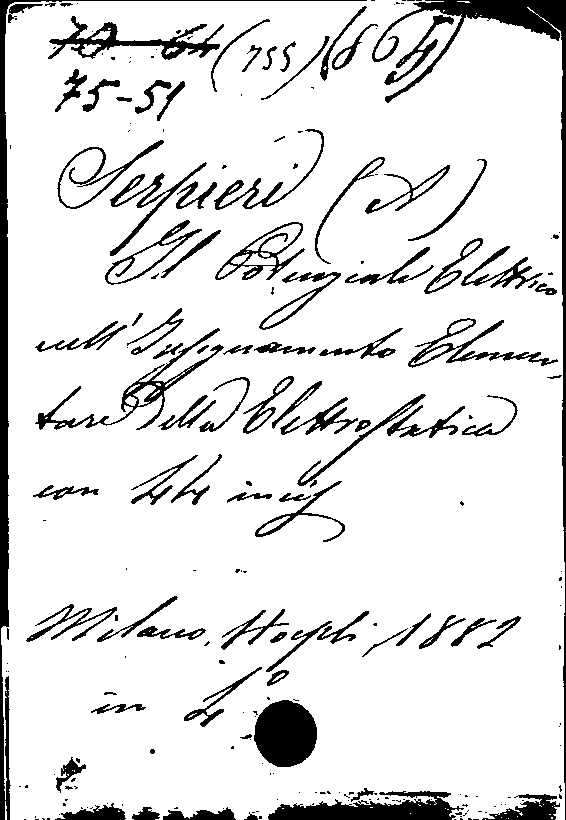 70. 64 (755) (864)
75-51
Serpieri (A)
Il Potenziale Elettrico
nell'Insegnamento Elemen-
tare Della Elettrostatica
con 44 incis
Milano, Hoepli, 1882
in 4°